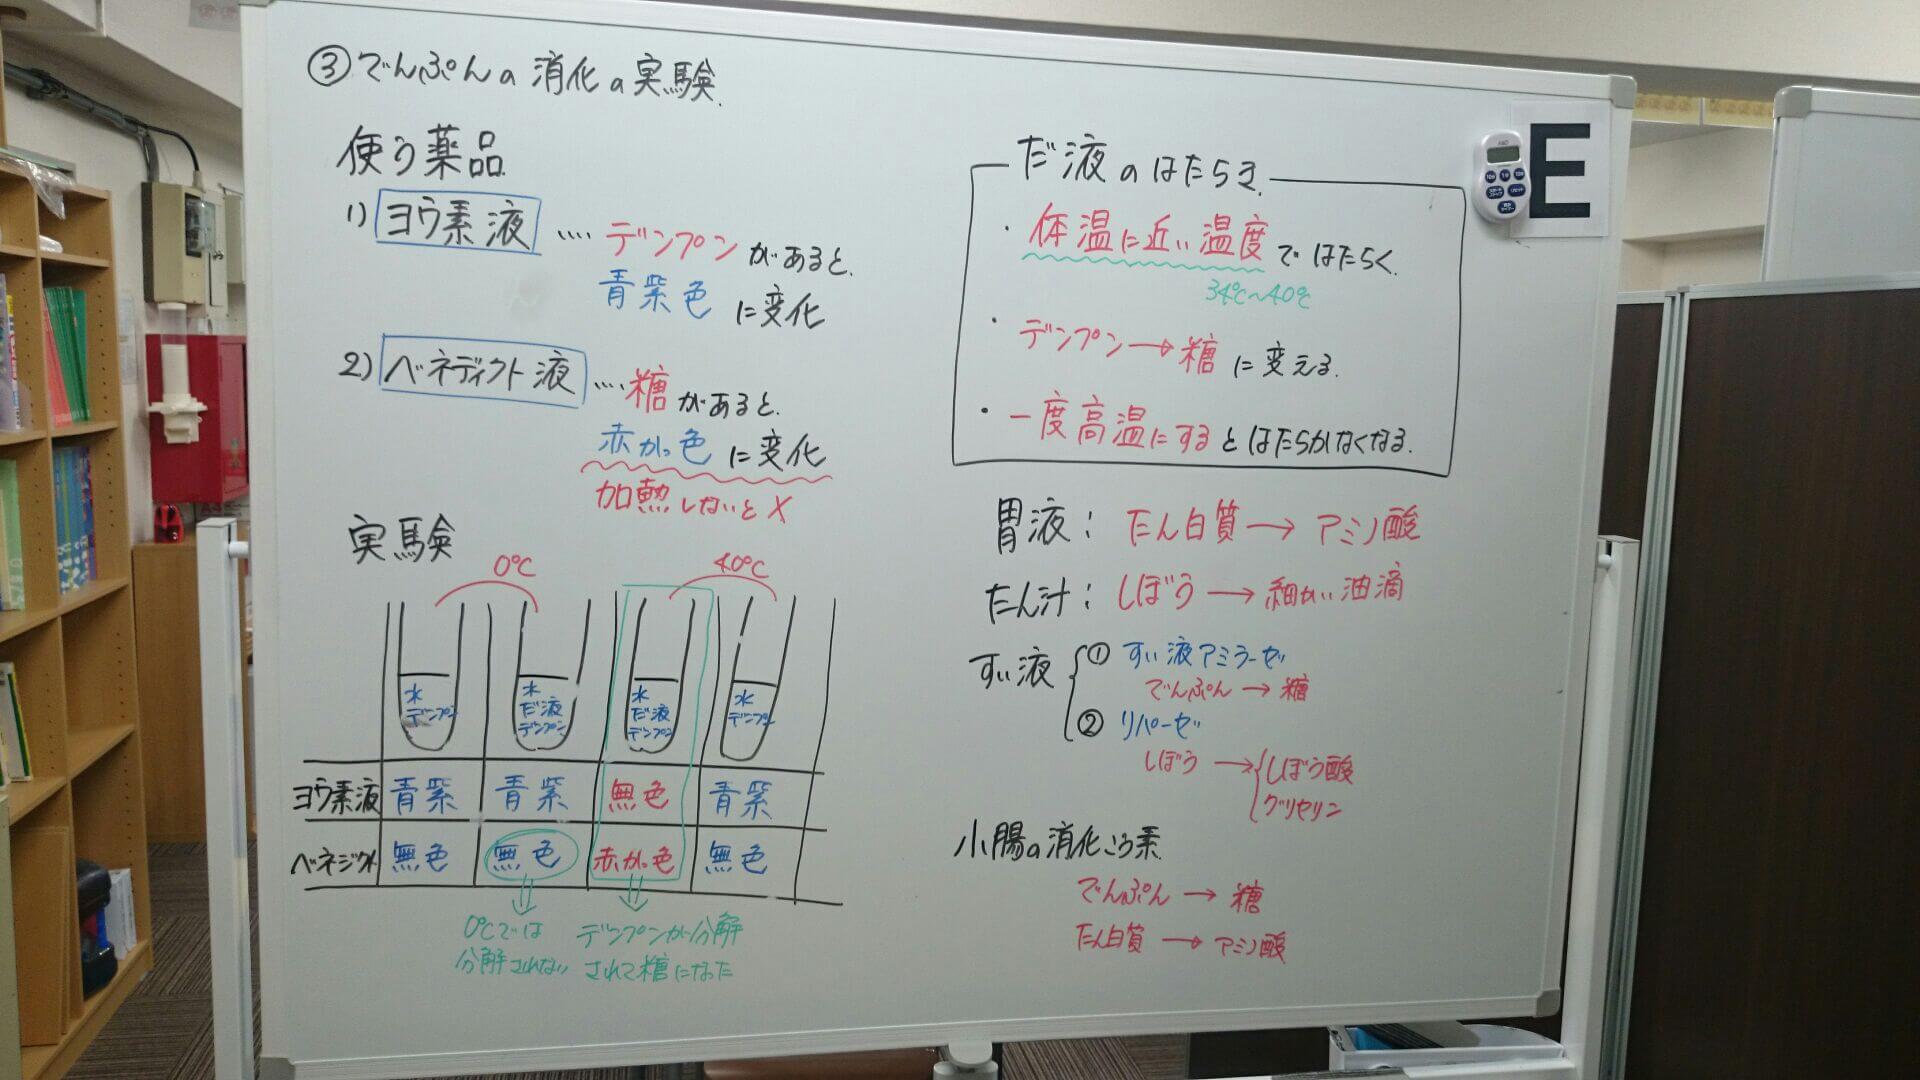 ③でんぷんの消化の実験
使う薬品
1) ヨウ素液 ‥‥ デンプンがあると、
青紫色に変化
2) ベネディクト液 ‥‥ 糖があると、
赤かっ色に変化
加熱しないと×
実験
0℃ 40℃
水 デンプン
水 だ液 デンプン
水 だ液 デンプン
水 デンプン
ヨウ素液 青紫 青紫 無色 青紫
ベネジクト 無色 無色 赤かっ色 無色
0℃では
分解されない
デンプンが分解
されて糖になった
だ液のはたらき
・体温に近い温度ではたらく。
34℃〜40℃
・デンプン→糖に変える。
・一度高温にするとはたらかなくなる。
胃液：たん白質→アミノ酸
たん汁：しぼう→細かい油滴
すい液 ① すい液アミラーゼ
でんぷん→糖
② リパーゼ
しぼう→しぼう酸
グリセリン
小腸の消化こう素
でんぷん→糖
たん白質→アミノ酸
E